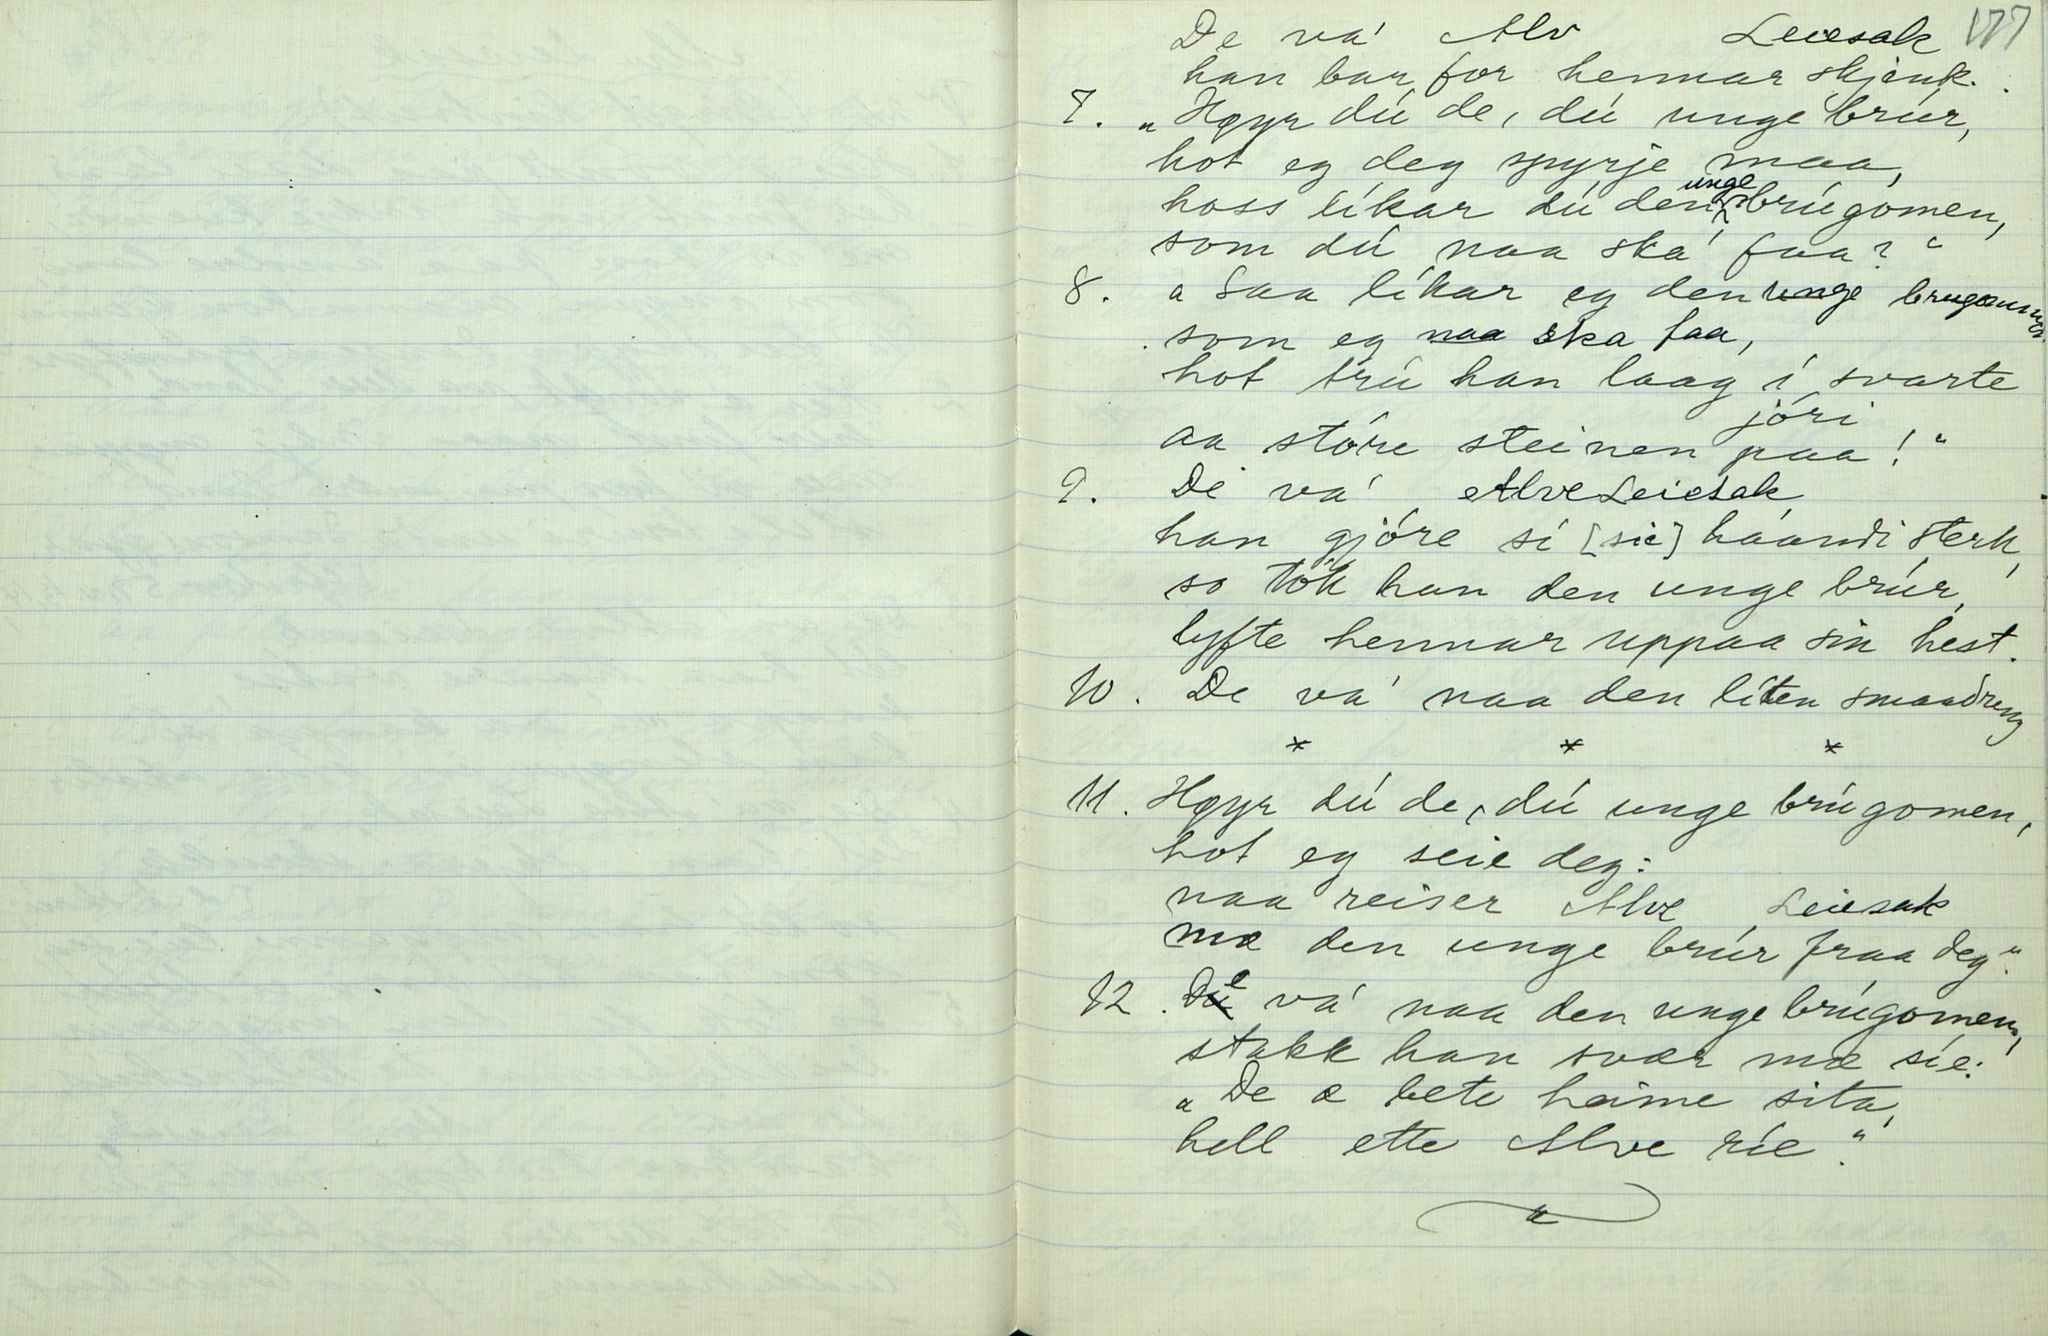 177
De vá Alv Leiesak
han bar for hennar skjenk.
7. „Høyr dú de, dú unge brúr,
hot eg deg spyrje maa,
hoss líkar dú den unge brúgomen,
som dú naa ska' faa?“
8. „Saa líkar eg den unge brugommen
som eg naa ska faa,
hot trú han laag í svarte
jóri
aa stóre steinen paa!“
9. De vá Alve Leiesak
han gjóre sí [sie] háandi sterk,
so tók han den unge brúr,
lyfte hennar uppaa sin hest.
10. De vá naa den líten smaadreng
* * *
11. Høyr dú de, dú unge brúgomen,
hot eg seie deg:
naa reiser Alve Leiesak
mæ den unge brúr fraa deg“.
12. De vá naa den unge brúgomen,
stakk han svær mæ síe:
„De æ bete heime sita,
hell ette Alve ríe.“